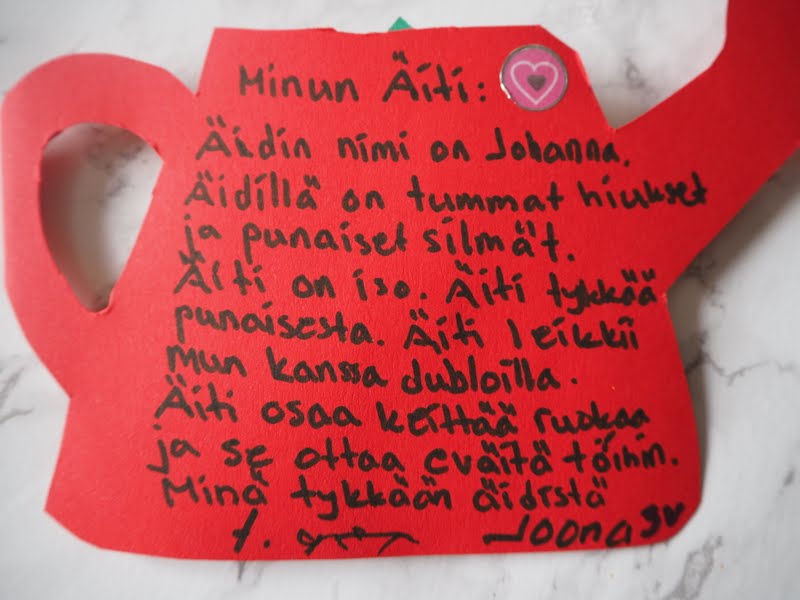 Minun Äiti:
Äidin nimi on Johanna.
Äidillä on tummat hiukset
ja punaiset silmät.
Äiti on iso. Äiti tykkää
punaisesta. Äiti leikkii
mun kanssa dubloilla.
Äiti osaa keittää ruokaa
ja se ottaa eväitä töihin.
Minä tykkään äidistä
t. Joona 3v